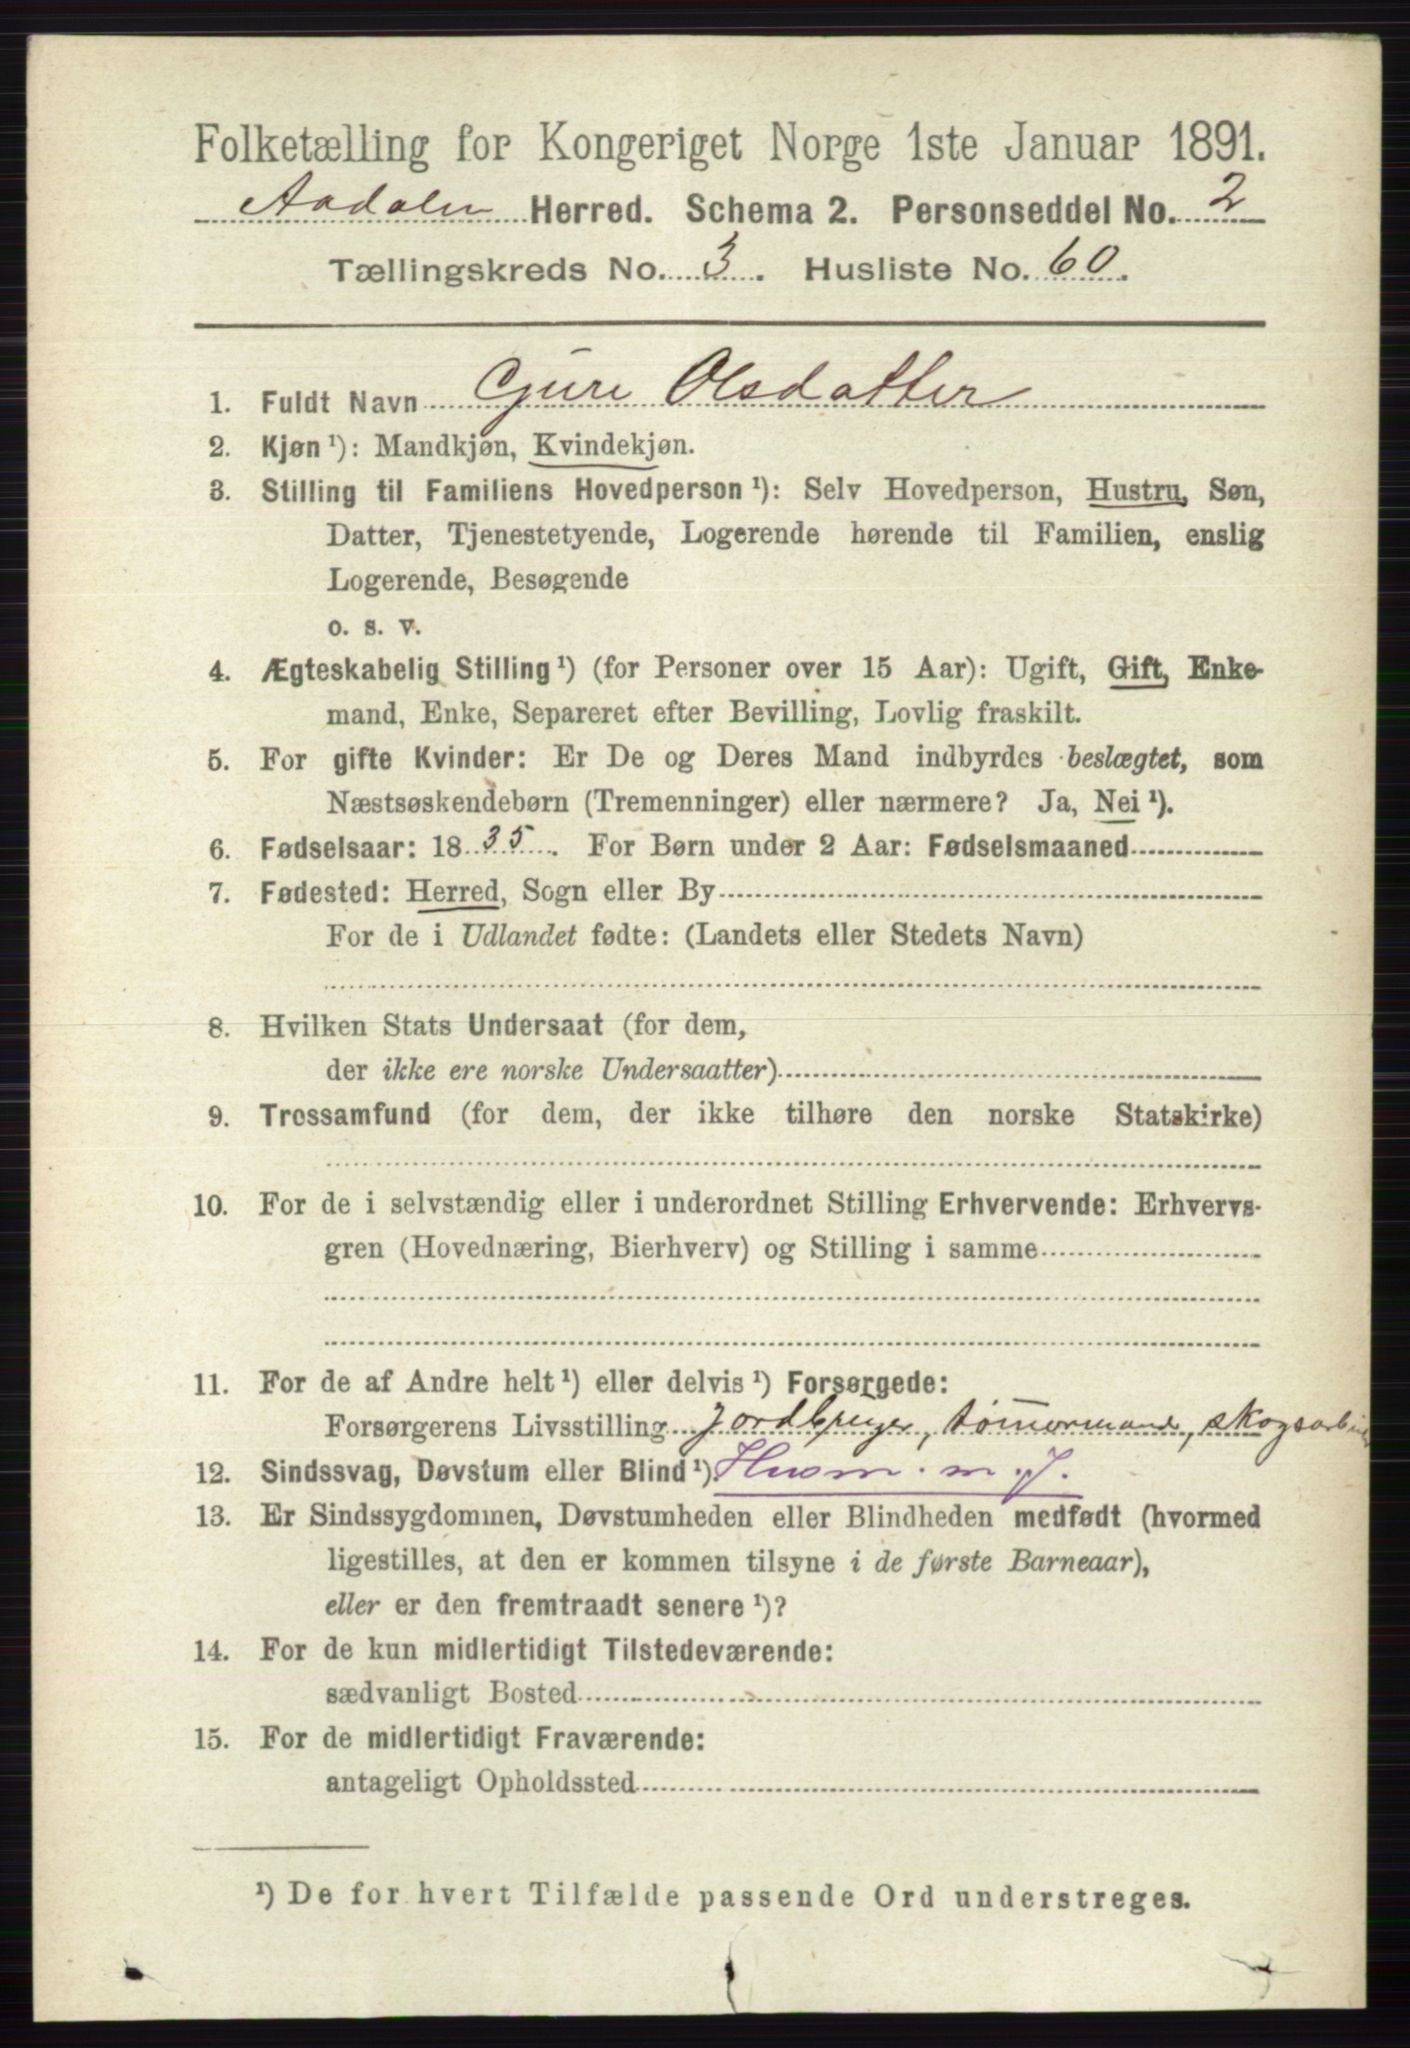 Folketælling for Kongeriget Norge 1ste Januar 1891.
Aadalen Herred. Schema 2. Personseddel No. 2
Tællingskreds No. 3. Husliste No. 60.
1. Fuldt Navn Gure Olsdatter
2. Kjøn ¹): Mandkjøn, Kvindekjøn.
3. Stilling til Familiens Hovedperson ¹): Selv Hovedperson, Hustru, Søn,
Datter, Tjenestetyende, Logerende hørende til Familien, enslig
Logerende, Besøgende
o. s. v.
4. Ægteskabelig Stilling ¹) (for Personer over 15 Aar): Ugift, Gift, Enke-
mand, Enke, Separeret efter Bevilling, Lovlig fraskilt.
5. For gifte Kvinder: Er De og Deres Mand indbyrdes beslægtet, som
Næstsøskendebørn (Tremenninger) eller nærmere? Ja, Nei ¹).
6. Fødselsaar: 1835. For Børn under 2 Aar: Fødselsmaaned
7. Fødested: Herred, Sogn eller By
For de i Udlandet fødte: (Landets eller Stedets Navn)
8. Hvilken Stats Undersaat (for dem,
der ikke ere norske Undersaatter)
9. Trossamfund (for dem, der ikke tilhøre den norske Statskirke)
10. For de i selvstændig eller i underordnet Stilling Erhvervende: Erhvervs-
gren (Hovednæring, Bierhverv) og Stilling i samme
11. For de af Andre helt ¹) eller delvis ¹) Forsørgede:
Forsørgerens Livsstilling Jordbruger, tømmermand, skogsarbeider
12. Sindssvag, Døvstum eller Blind ¹). Husm. m. J.
13. Er Sindssygdommen, Døvstumheden eller Blindheden medfødt (hvormed
ligestilles, at den er kommen tilsyne i de første Barneaar),
eller er den fremtraadt senere ¹)?
14. For de kun midlertidigt Tilstedeværende:
sædvanligt Bosted
15. For de midlertidigt Fraværende:
antageligt Opholdssted
¹) De for hvert Tilfælde passende Ord understreges.